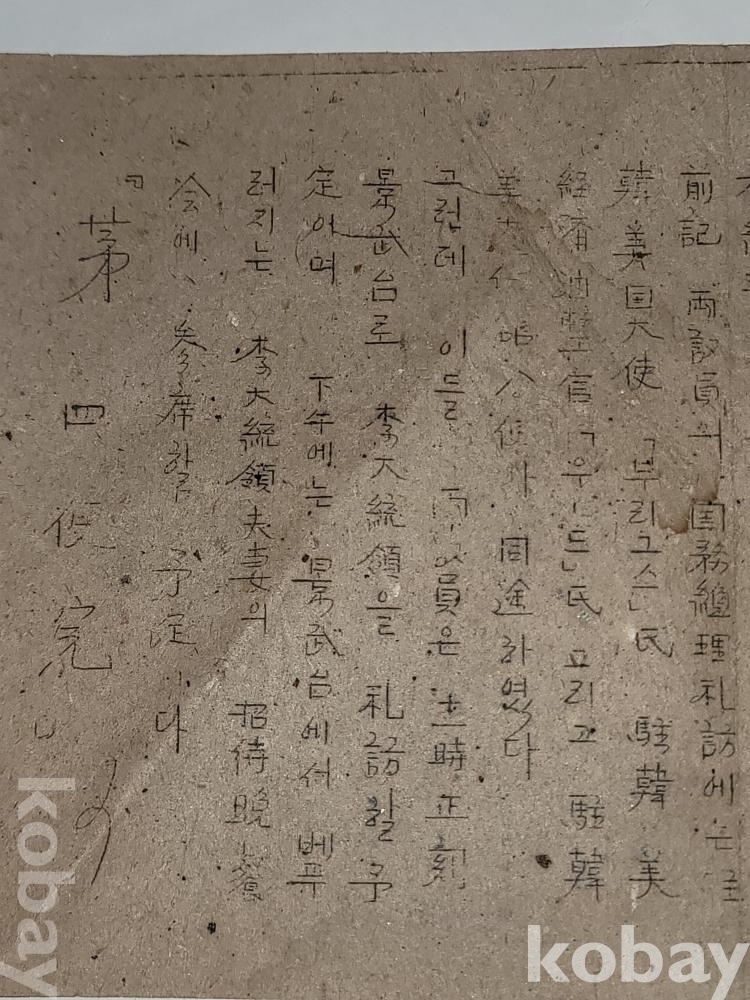 前記 両議員의 国務總理礼訪에는 駐
韓美国大使 「부리그스」氏 駐韓美
経済調整官 「우드」氏 그리고 駐韓
同途하였다
그런데 이들 両議員은 士時正刻
景武台로 李大統領을 礼訪할 予
定이며 下午에는 景武台에서 베푸
러지는 李大統領夫妻의 招待晩餐
会에 参席할 予定이다
『第四便完』
kobay
kobay